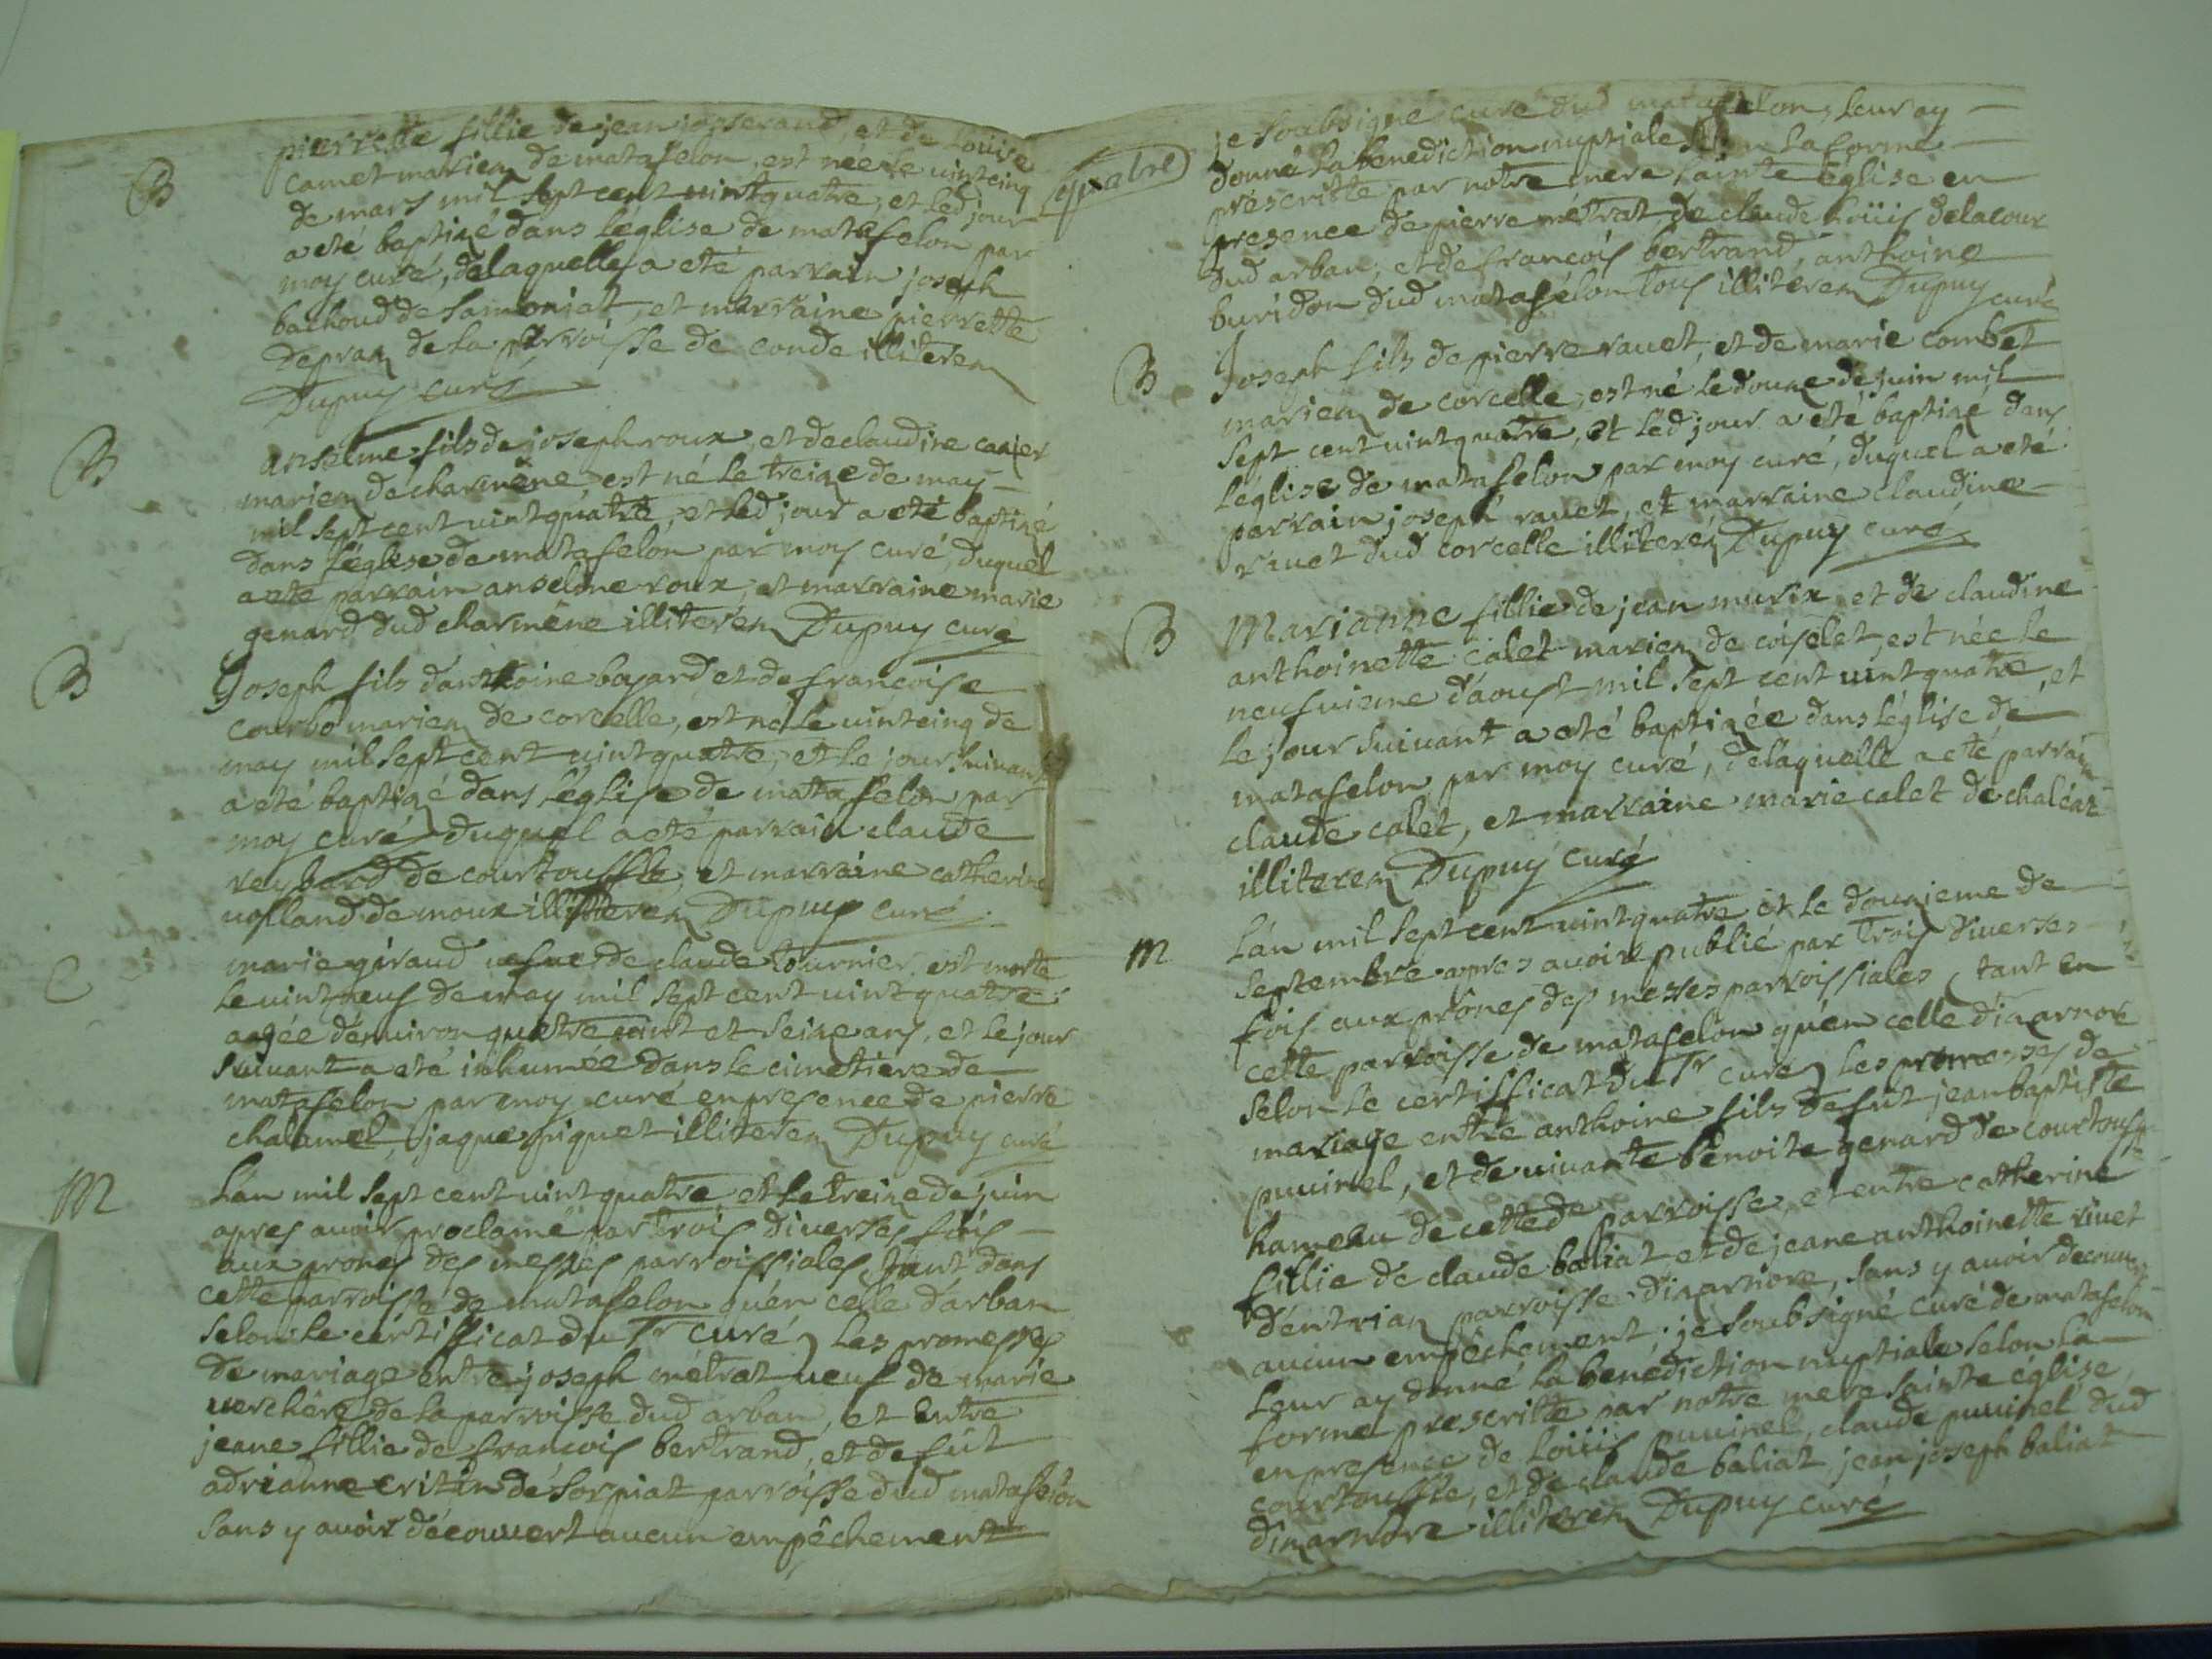 B
pierrette fillie de jean josserand, et de Louise
camet mariez de matafelon, est née le uintcinq
de mars mil sept cent uintquatre, et led jour
a eté baptizé dans l'église de matafelon par
moy curé, de laquelle a eté parrain joseph
bachoud de Samoniat, et marraine pierrette
depraz de la parroisse de conde illiterez
Dupuy curé
B
anselme fils de joseph roux, et de claudine
mariez de charmêne est né le treize de may
mil sept cent uintquatre, et led jour a eté baptizé
dans l'église de matafelon par moy curé, duquel
a eté parrain anselme roux, et marraine marie
genard dud charmêne illiteréz Dupuy curé
B
Joseph fils d'anthoine bayard et de francoise
courbo mariez de corcelle, est né le uintcinq de
may mil sept cent uintquatre, et le jour suiuant
a eté baptizé dans l'église de matafelon par
moy curé duquel a eté parrain claude
reybard de courtouffle, et marraine catherine
uolland de moux illitterez Dupuy curé
C
marie giraud uefue de claude tournier est morte
le uintneuf de may mil sept cent uintquatre
aagée d'enuiron quatre uint et seize ans, et le jour
suiuant a eté inhumée dans le cimetiere de
matafelon par moy curé en presence de pierre
chalamel, jaque piquet illiterez Dupuy curé
M
L'an mil sept cent uintquatre et le treize de juin
apres auoir proclamé par trois diuerses fois
aux prones des messes parroissiales, tant dans
cette parroisse de matafelon qu'en celle d'arban
selon le certifficat du Sr curé, les promesses
de mariage entre joseph métrat ueuf de marie
uerchêre de la parroisse dud arban, et entre
jeane fillie de francois bertrand, et de fût
adrianne critin de sorpiat parroisse dud matafelon
sans y auoir découuert aucun empêchement
quatre
je soubsigne curé dud matafelon, leur ay
donné la benediction nuptiale selon la forme
prescritte par notre mere sainte Eglise en
presence de pierre métrat de claude Loüis delacour
dud arban, et de francois bertrand, anthoine
buridon dud matafélon tous illiterez Dupuy curé
B
Joseph fils de pierre rauet, et de marie combet
mariez de corcelle, est né le douze de juin mil
sept cent uintquatre, et led jour a eté baptizé dans
l'église de matafelon par moy curé, duquel a eté
parrain joseph rauet, et marraine claudine
rauet dud corcelle illiteréz Dupuy curé
B
Marianne fillie de jean murix et de claudine
anthoinette calet mariez de coiselet, est née le
neufuieme d'aoust mil sept cent uintquatre, et
le jour suiuant a eté baptizée dans l'église de
matafelon par moy curé, de laquelle a eté parrain
claude calet, et marraine marie calet de chaléat
illiterez Dupuy curé
M
L'án mil sept cent uintquatre et le douzieme de
septembre apres auoir publié par trois diuerses
fois aux prônes des messes parroissiales, tant en
cette parroisse de matafelon qu'en celle d'izarnore
selon le certifficat du Sr curé, les promesses de
mariage entre anthoine fils de fût jean baptiste
puuinel, et de uiuante benoite genard de courtouffle
hameau de cette de parroisse, et entre catherine
fillie de claude baliat, et de jeane anthoinette riuet
d'entriaz parroisse d'izarnore, sans y auoir decouuert
aucun empêchement, je soubsigné curé de matafelon
leur ay donné la benediction nuptiale selon la
forme prescritte par notre mere sainte église,
en presence de Loüis puuinel, claude puuinel dud
courtouffle, et de claude baliat jean joseph baliat
d'izarnore illiterez Dupuy curé